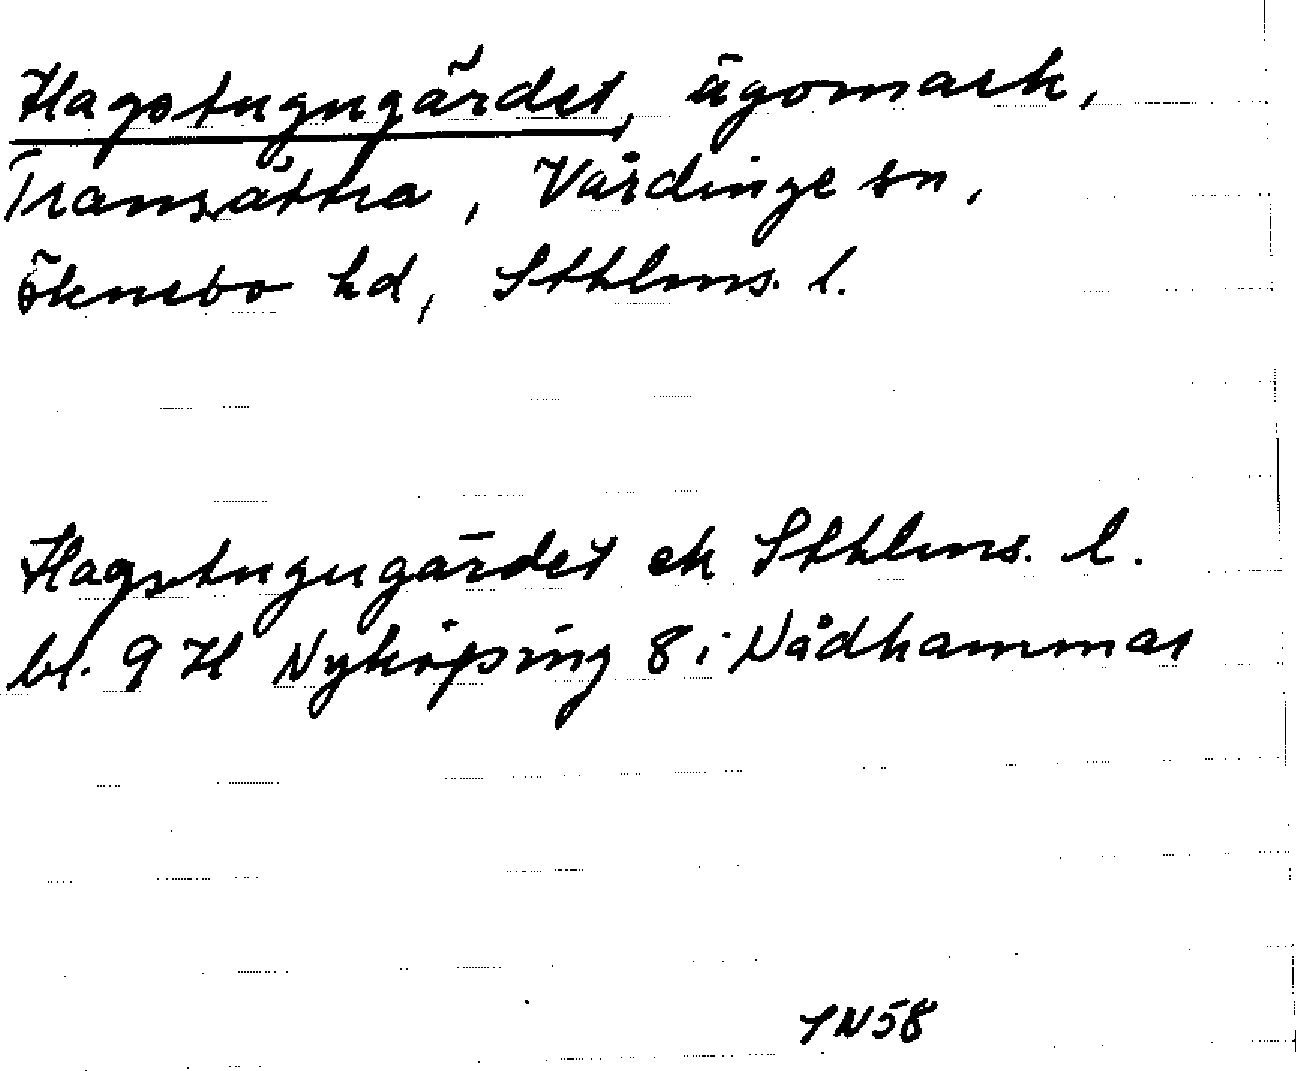 Hagstugugärdet, ägomark,
Transättra, Vårdinge sn,
Öknebo hd, Sthlms. l.
Hagstugugärdet ek Sthlms. l.
bl. 9 H Nyköping 8 i Nådhammar
YN58